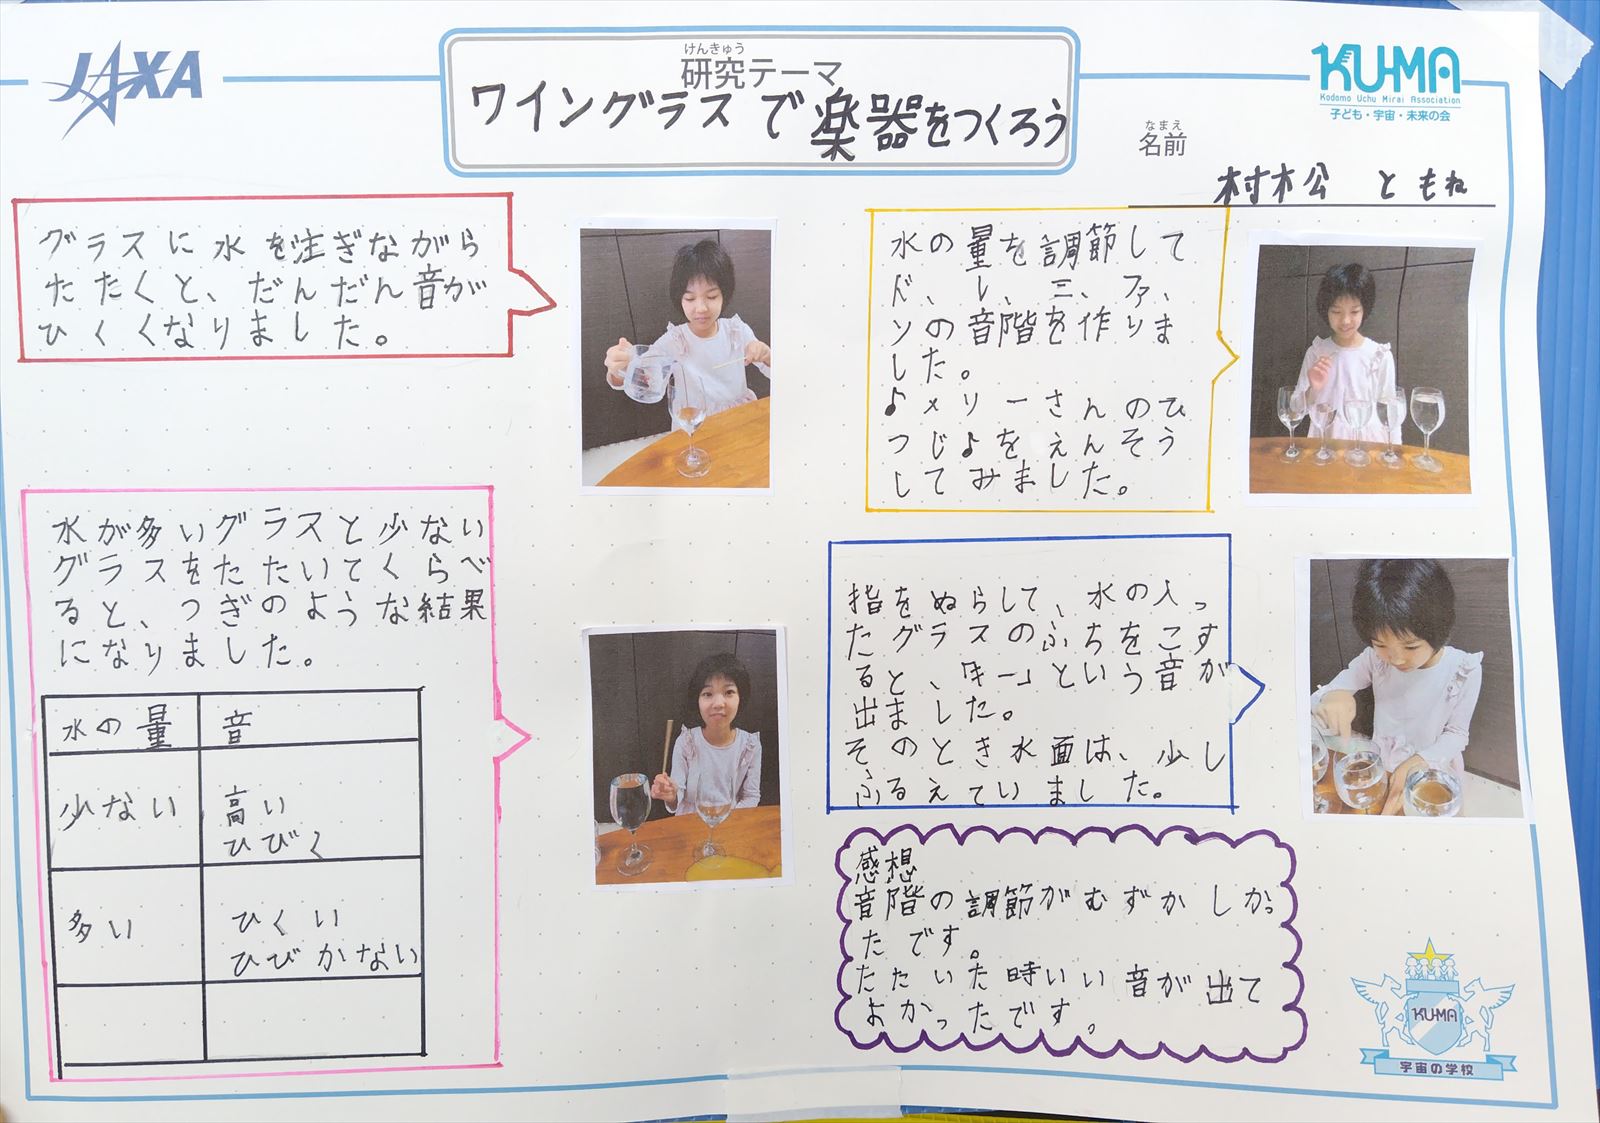 JAXA
けんきゅう
研究テーマ
ワイングラスで楽器をつくろう
KU-MA
Kodomo Uchu Mirai Association
子ども・宇宙・未来の会
なまえ
名前
村松 ともね
グラスに水を注ぎながら
たたくと、だんだん音が
ひくくなりました。
水の量を調節して
ド、レ、ミ、ファ、
ソの音階を作りま
した。
♪メリーさんのひ
つじ♪をえんそう
してみました。
水が多いグラスと少ない
グラスをたたいてくらべ
ると、つぎのような結果
になりました。
水の量 音
少ない 高い
ひびく
多い ひくい
ひびかない
指をぬらして、水の入っ
たグラスのふちをこす
ると、「キー」という音が
出ました。
そのとき水面は、少し
ふるえていました。
感想
音階の調節がむずかしかっ
たです。
たたいた時いい音が出て
よかったです。
KU-MA
宇宙の学校